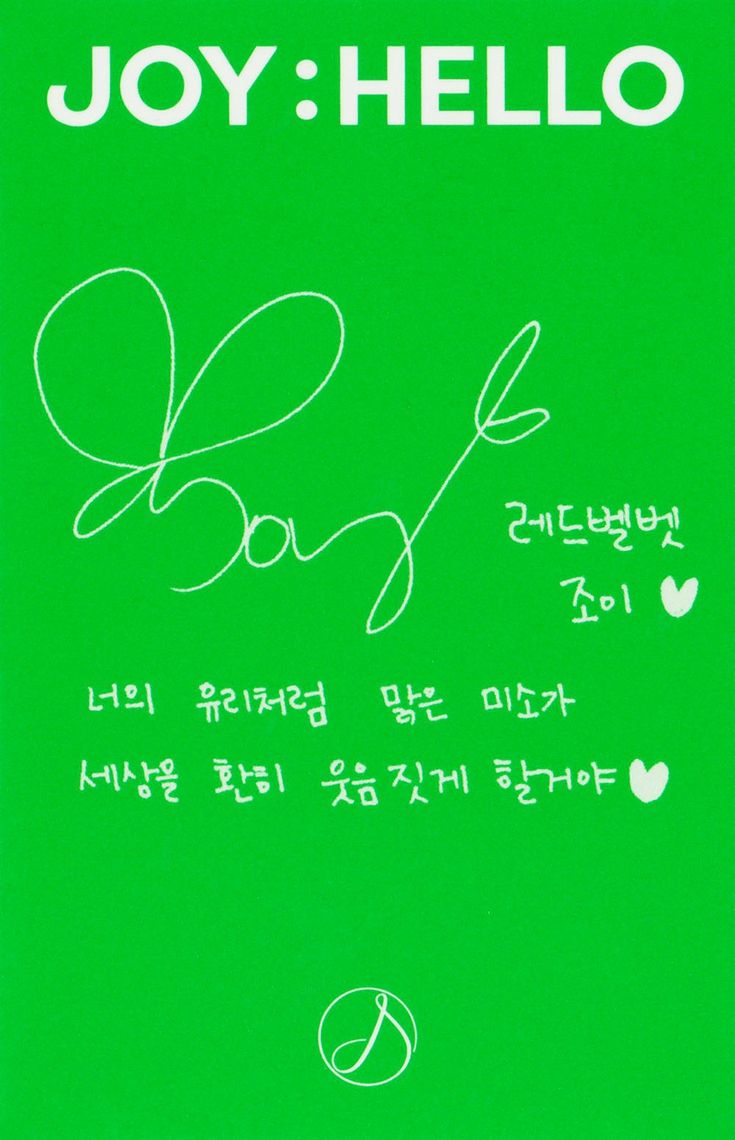 JOY:HELLO
Joy
레드벨벳
조이 ♥
너의 유리처럼 맑은 미소가
세상을 환히 웃음 짓게 할거야♥